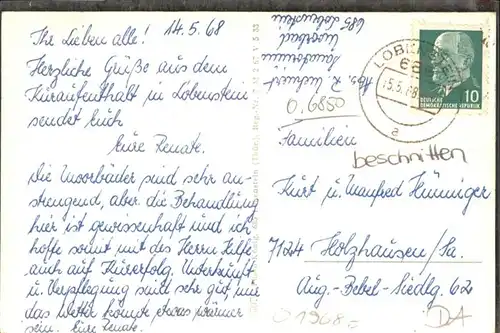 14.5.68
Ihr Lieben alle!
Herzliche Grüße aus dem
Kuraufenthalt in Lobenstein
sendet Euch
Eure Renate.
Die Moorbäder sind sehr an-
strengend, aber die Behandlung
hier ist gewissenhaft und ich
hoffe somit mit des Herrn Hilfe
auch auf Kurerfolg. Unterkunft
u. Verpflegung sind sehr gut, nur
das Wetter könnte etwas wärmer
sein. Eure Renate.
Abs. R.
Sanatorium
Moorbad
685 Lobenstein
0.6850
LOBENSTEIN
685
15.5.68
a
DEUTSCHE
DEMOKRATISCHE REPUBLIK
10
Familien
beschnitten
Kurt u. Manfred Hünniger
7124 Holzhausen/Sa.
Aug.-Bebel-Siedlg 62
0 1968